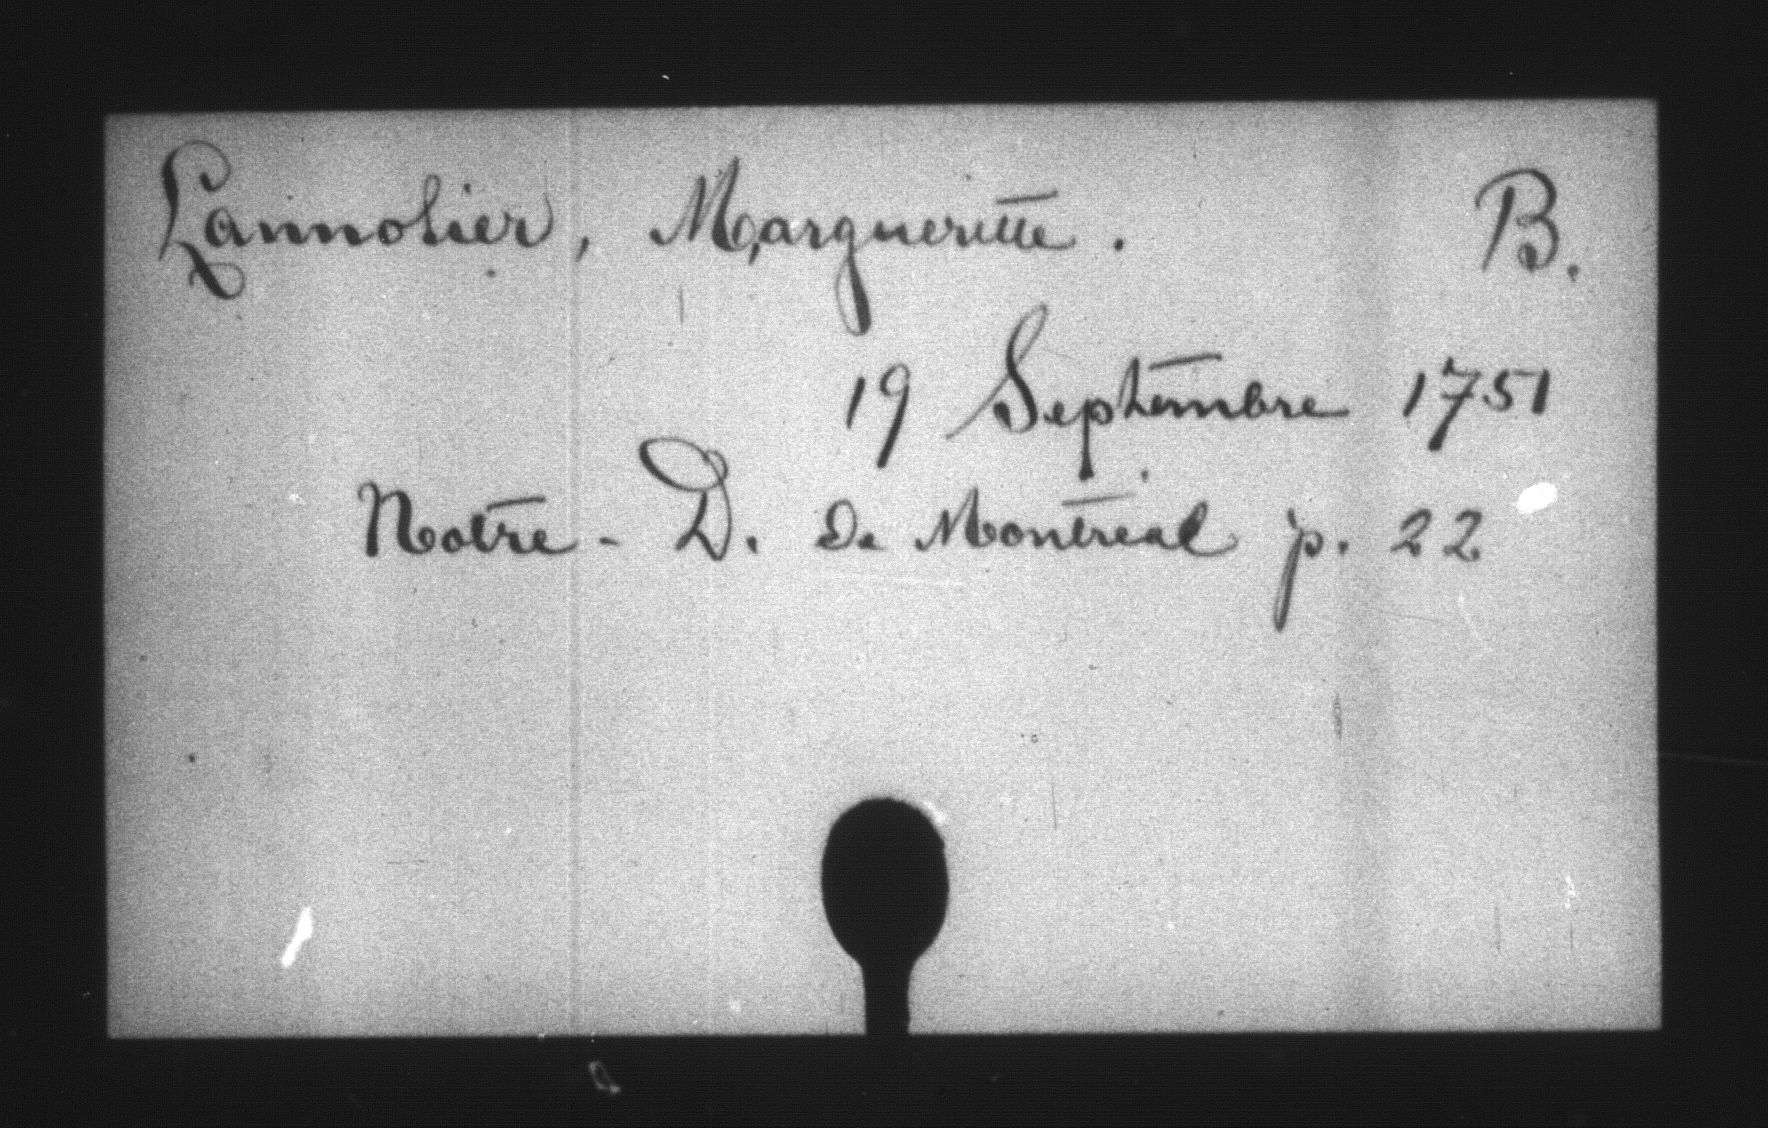 Lannolier, Margueritte. B.
19 Septembre 1751
Notre-D. de Montréal p. 22